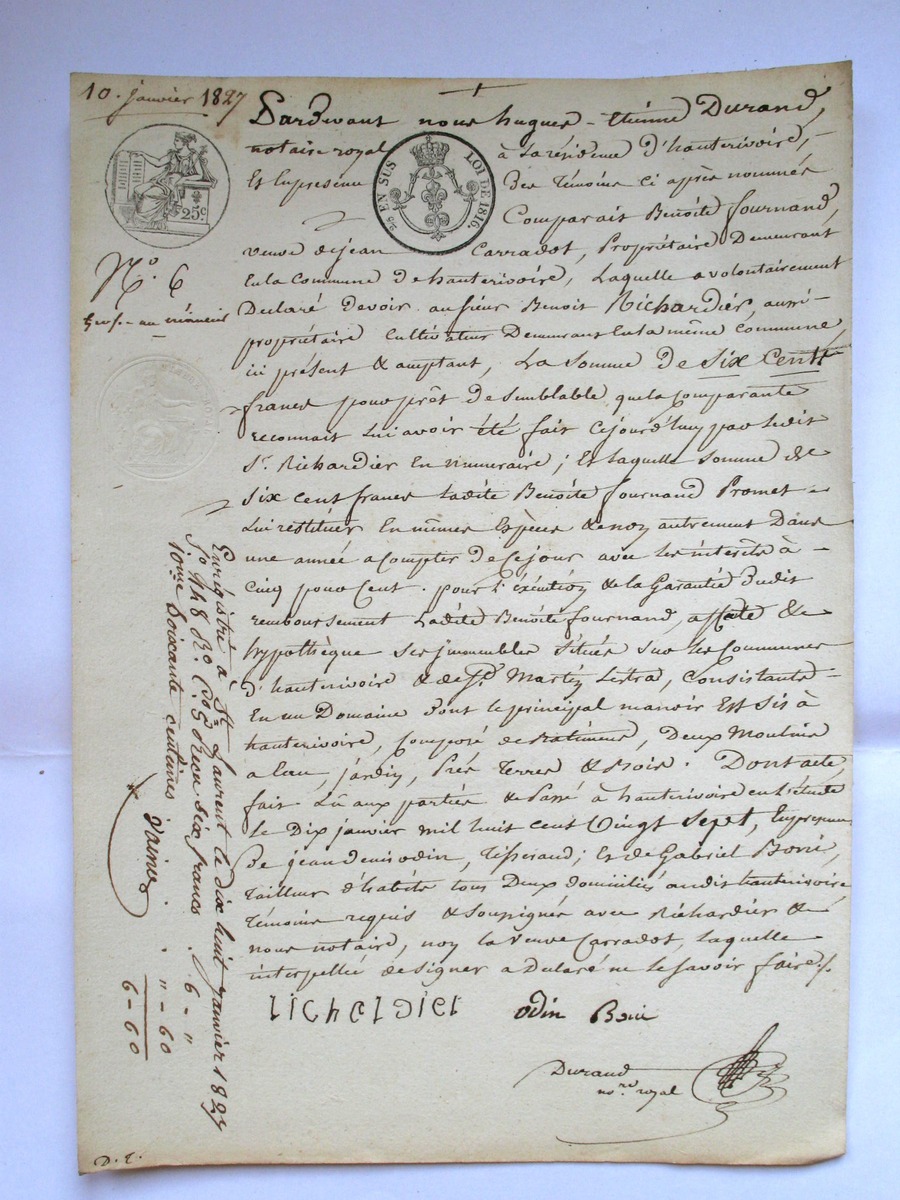 10. janvier 1827
Pardevant nous hugues-Etiéne Durand,
notaire royal à la résidence d'hauterivoire,-
Et En presence des témoins ci après nommés
Comparait Benoite fournand,
veuve de jean Carradot, Propriétaire Demeurant
En la Commune De hauterivoire, Laquelle a volontairement
Declaré devoir au sieur Benoit Richardier, aussi-
propriétaire Cultivateur Demeurant En la même Commune,
ici présent & acceptant, La Somme De Six Cents
francs pour prêt de semblable que la Comparante
reconnait Lui avoir été fait Cejourd'huy par Ledit
Sr. Richardier En numeraire; Et laquelle Somme de
Six cent francs Ladite Benoite fournand Promet
Lui restituer En mêmes Espèces & non autrement Dans
une année a Compter de Ce jour avec les intérêts à-
Cinq pour Cent. pour L'éxécution & la Garantie Dudit
remboursement Ladite Benoite fournand, affecte &
hypothèque ses immeubles Situés sur les Communes
d'hauterivoire & de St. Martin Lestra, Consistants-
En un Domaine dont le principal manoir Est sis à
hauterivoire, Composé de Batimens, Deux Moulins
a Eau, jardin, Prés Terres & Bois. Dont acte
fait Lû aux parties & Passé à hauterivoire En L'étude
Le Dix janvier mil huit cent Vingt Sept, En presence
De jean denis odin, Tisserand; Et de Gabriel Borie,
Tailleur d'habits tous Deux domiciliés audit hauterivoire
Témoins requis & soussignés avec Richardier &
nous notaire, non la veuve Carradot, laquelle
interpellée de signer a Declaré ne le savoir faire./.
richardier odin Borie
Durand
nore. royal
25c
25c EN SUS LOI DE 1816.
No. 6
Grosse au créancier
Enregistré à St. Laurent le dix huit janvier 1827
fo. 148 Ro. Co. 5 Reçu six francs . 6 - "
10eme Soixante centimes . " - 60
6 - 60
D. E.